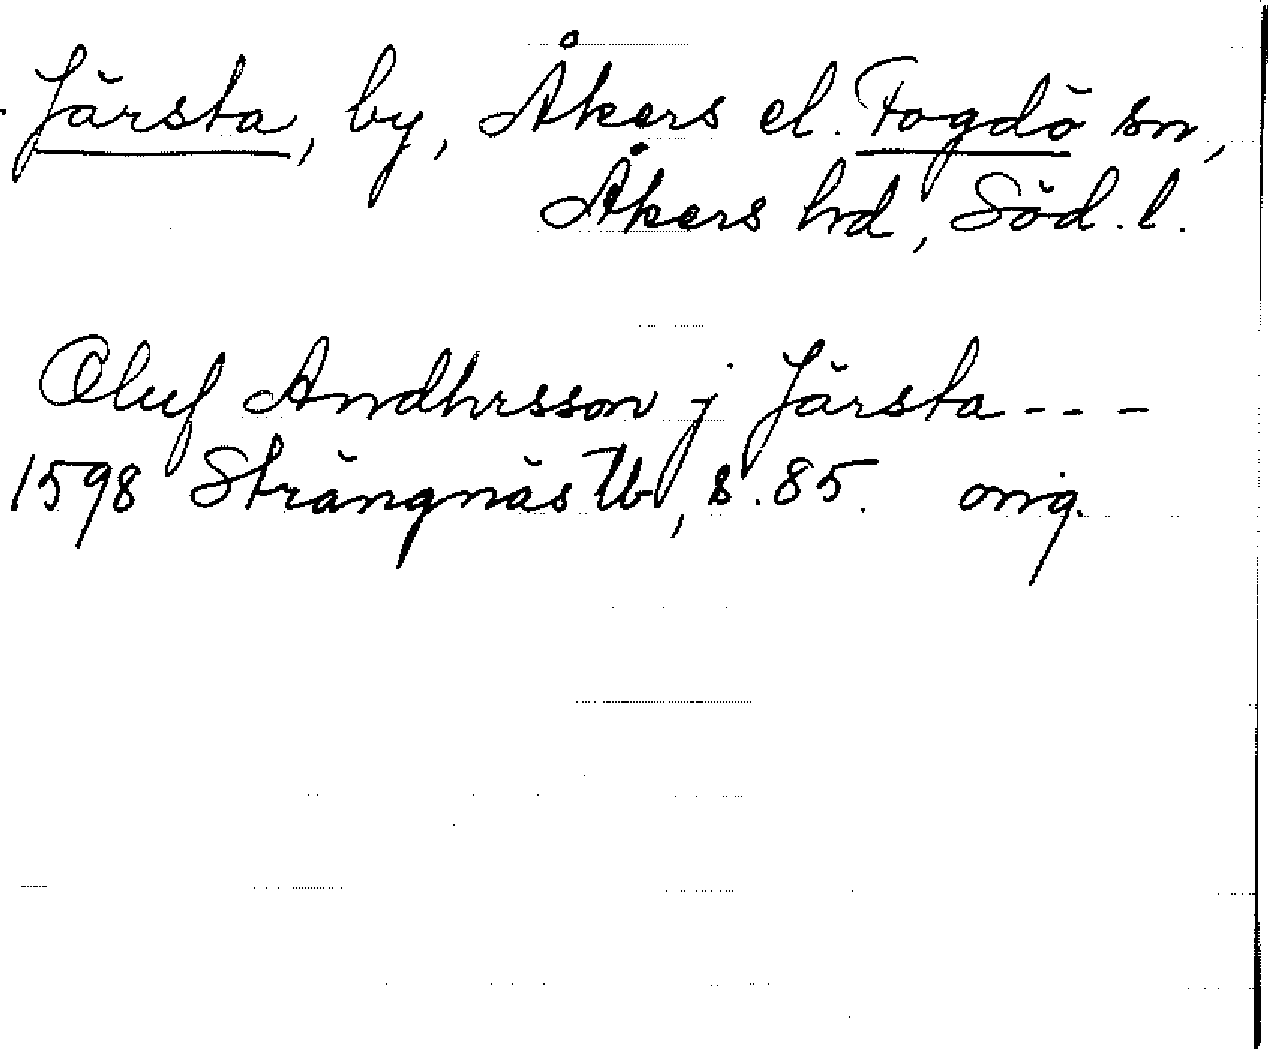 Järsta, by, Åkers el. Fogdö sn,
Åkers hd, Söd. l.
Oluf Andhrsson j Järsta - - -
1598 Strängnäs Tb, s. 85. orig.